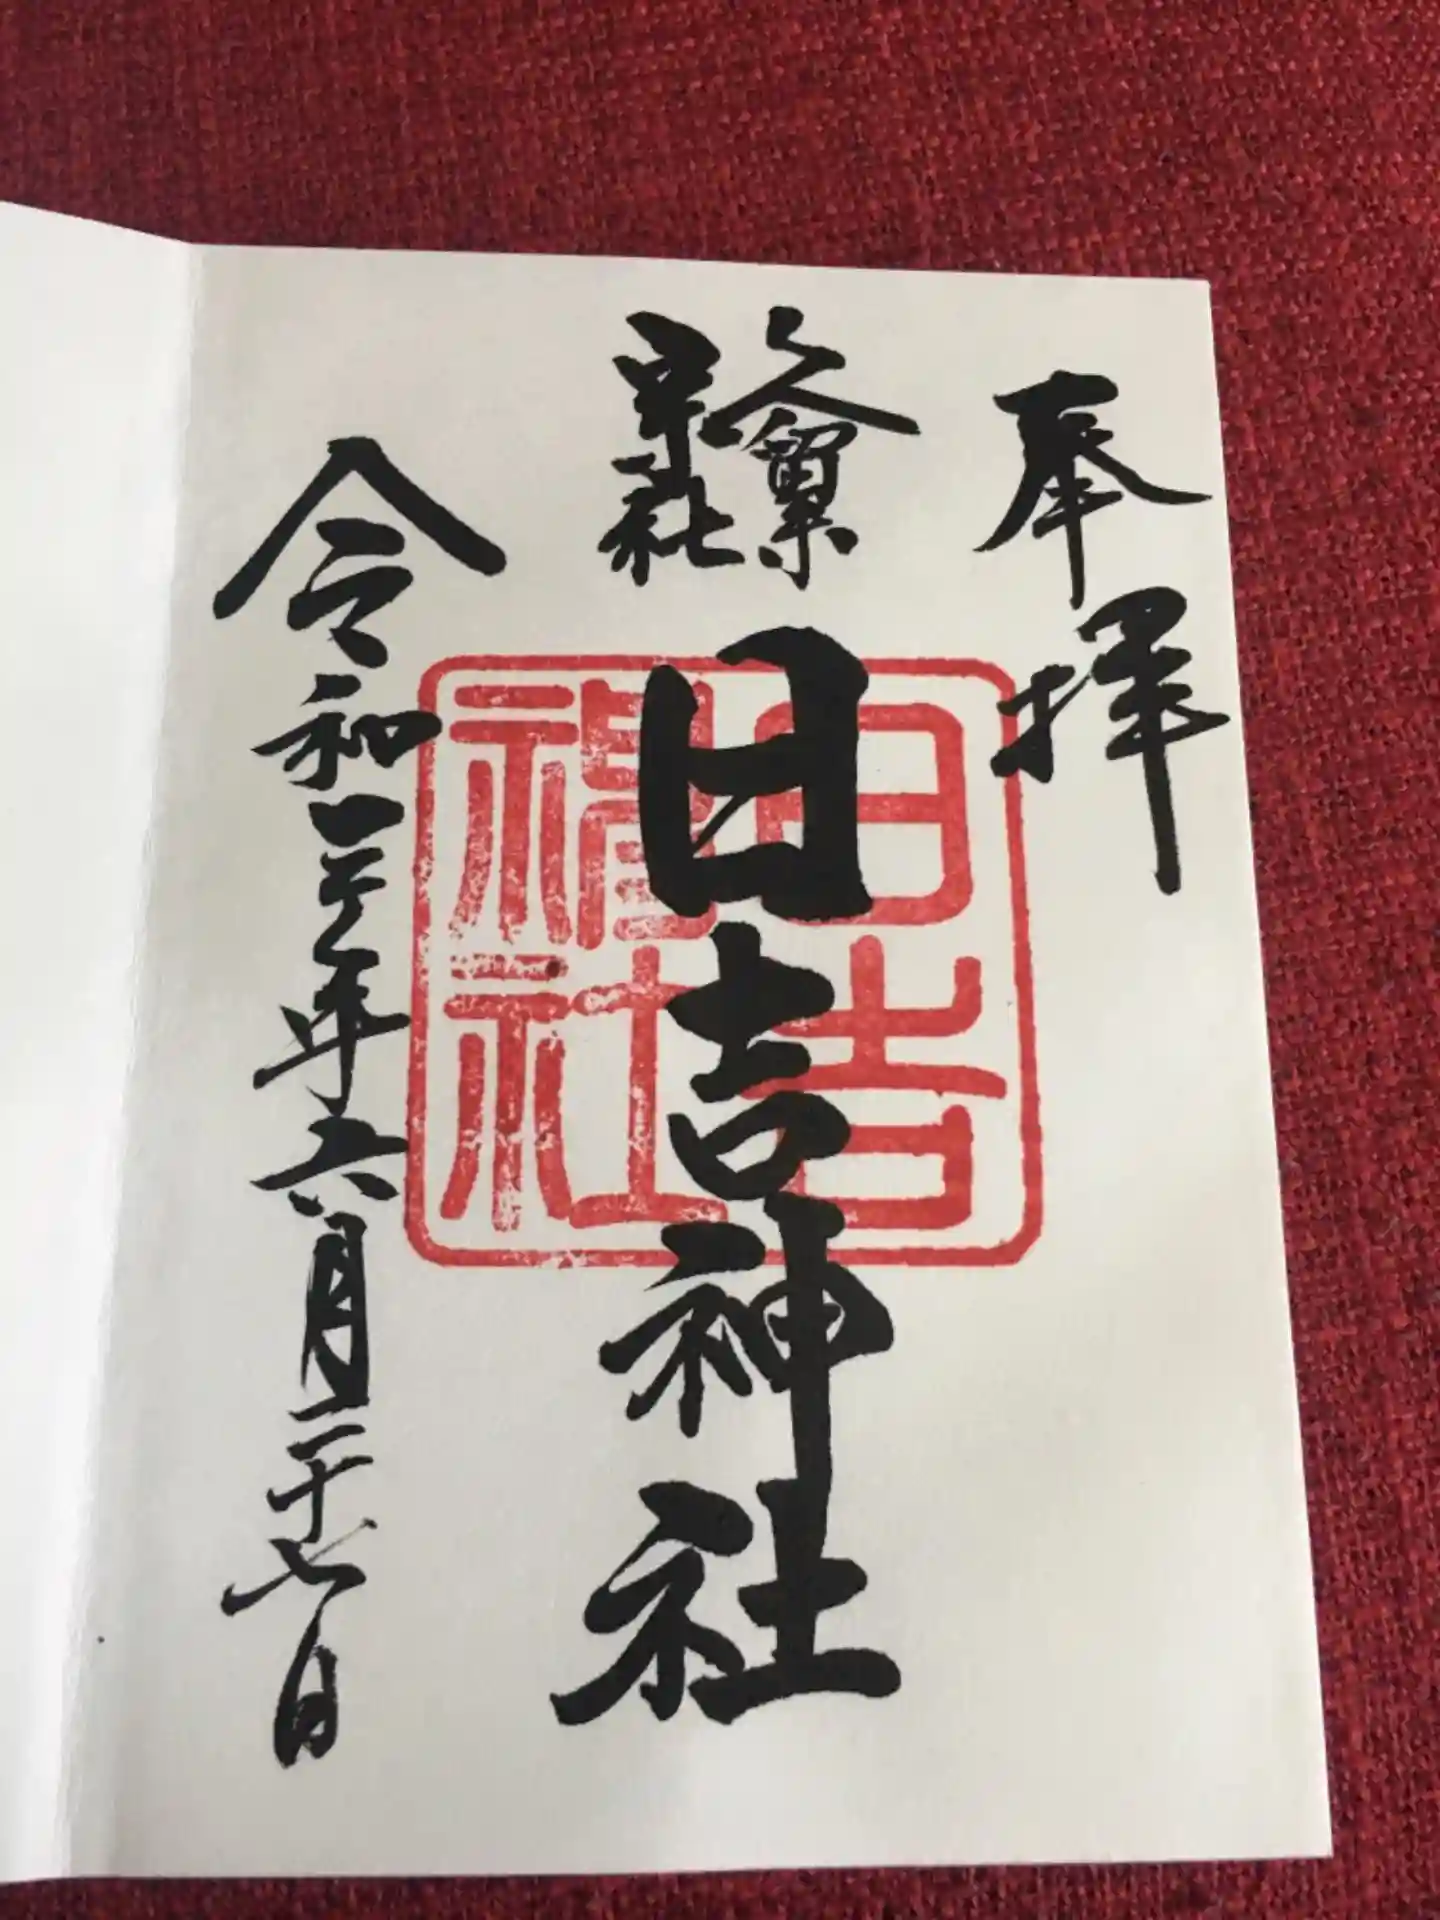 奉拝
久留米
宗社
日吉神社
日吉
神社
令和三年六月二十七日